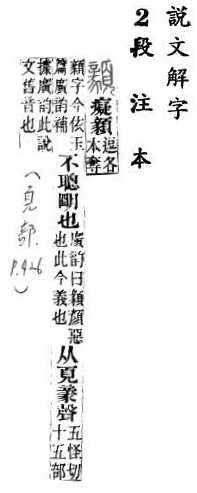 說文解字
2段注本
顡
癡顡
逗各
本奪
顡字今依玉
篇廣韵補
不聰明也
廣韵曰顡顏惡
也此今義也
从頁豙聲
五怪切
十五部
據廣韵此說
文舊音也
(頁部. P.426)